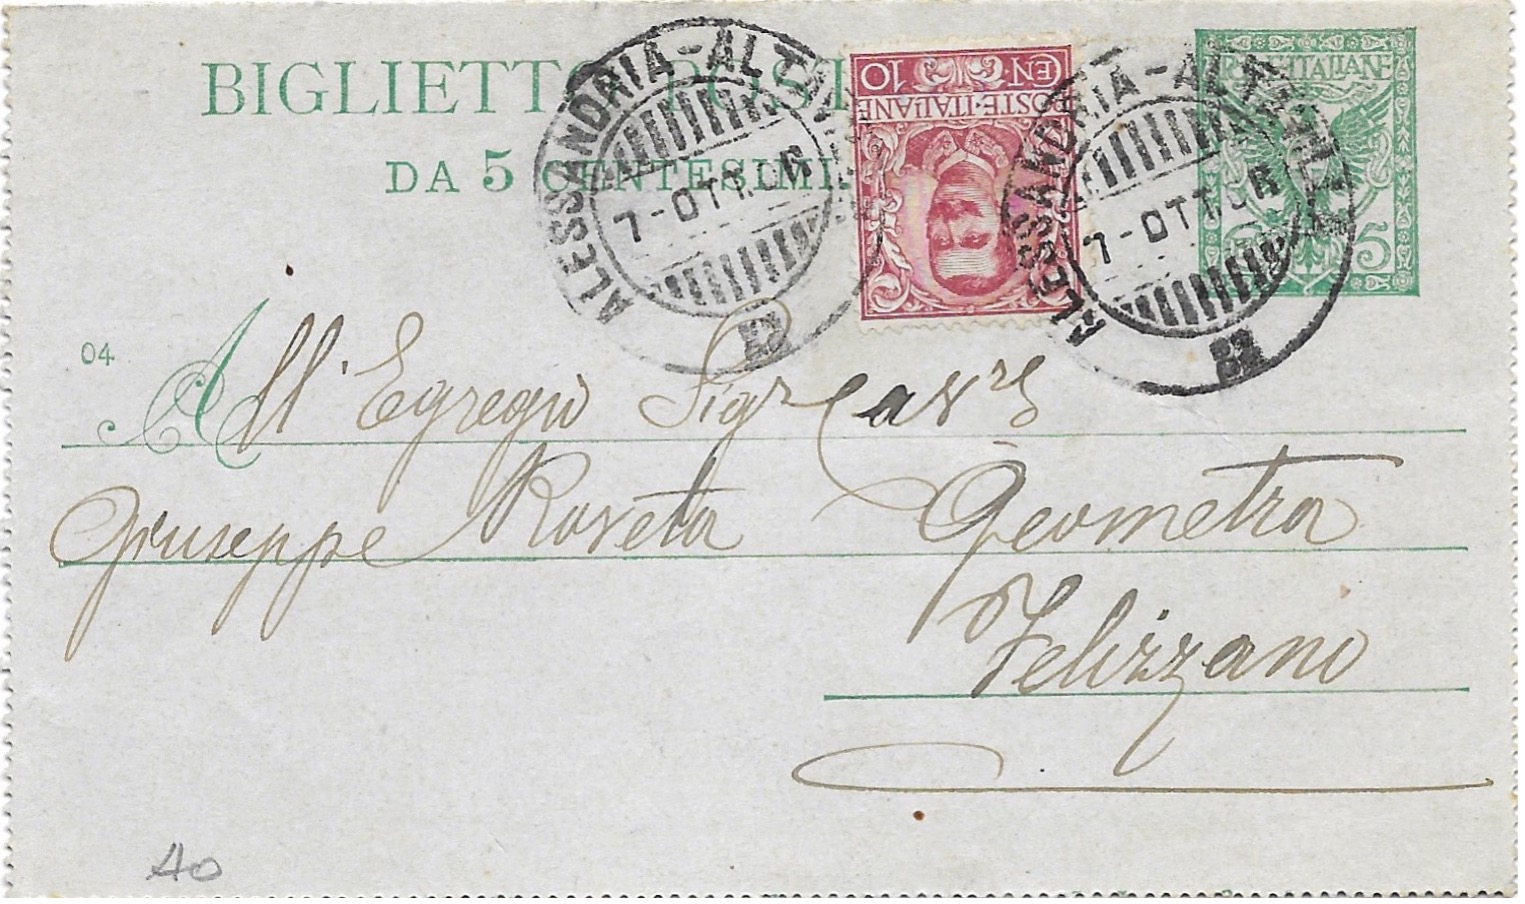 BIGLIETTO POSTALE
DA 5 CENTESIMI
ALESSANDRIA-ALTAVILLA
7-OTT.06
82
10 CEN.
POSTE·ITALIANE
ALESSANDRIA-ALTAVILLA
7-OTT.06
82
POSTE·ITALIANE
5
04
All'Egregio Sigr Cavre
Giuseppe Raveta Geometra
Felizzano
AO